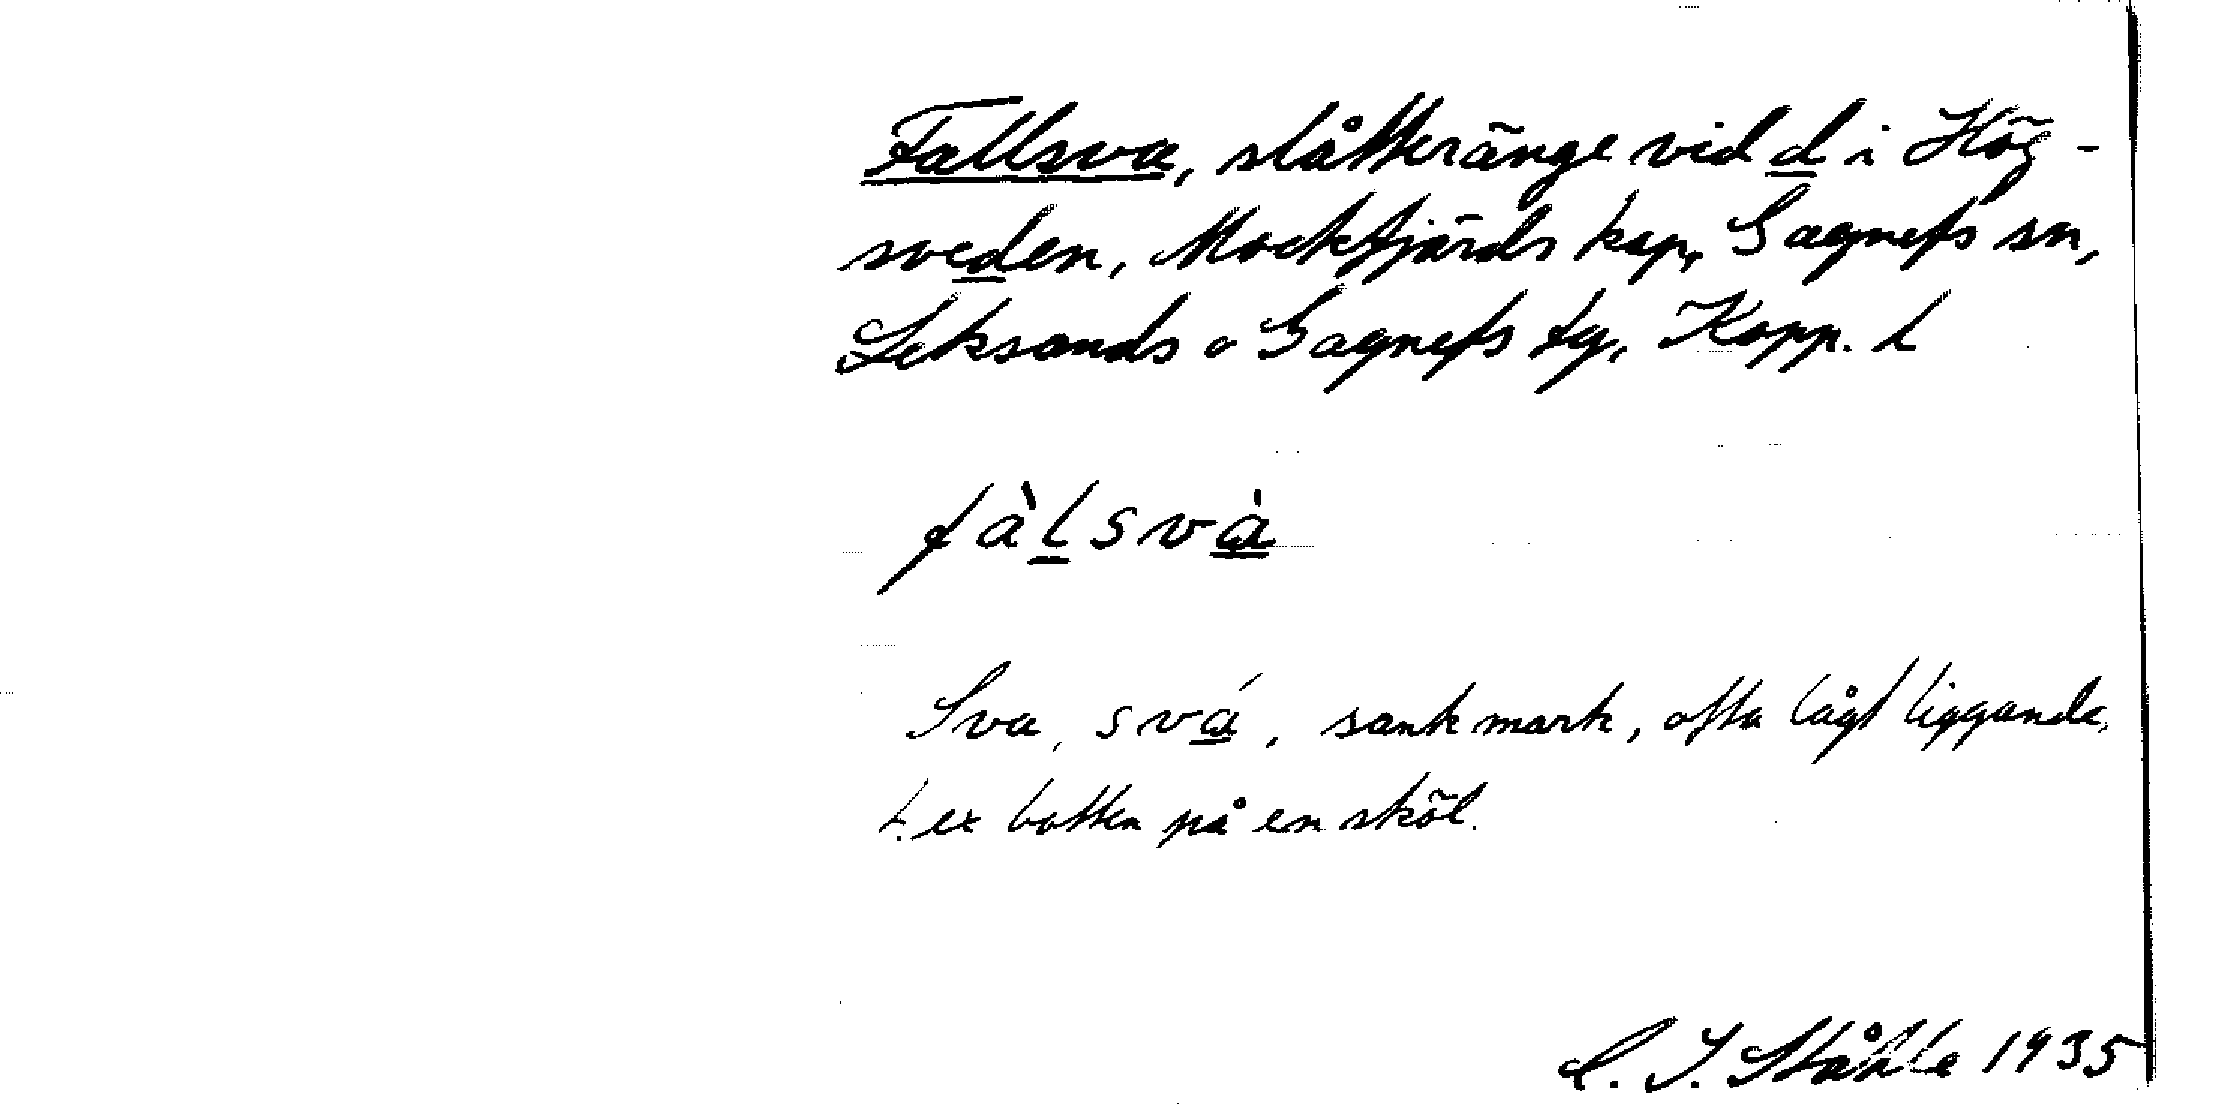 Fallsva, slåtteränge vid d i Hög-
sveden, Mockfjärds kap, Gagnefs sn,
Leksands o Gagnefs tg, Kopp. l
fàlsvà
Sva, svá, sank mark, ofta lågt liggande,
t. ex botten på en sköl.
C. I. Ståhle 1935